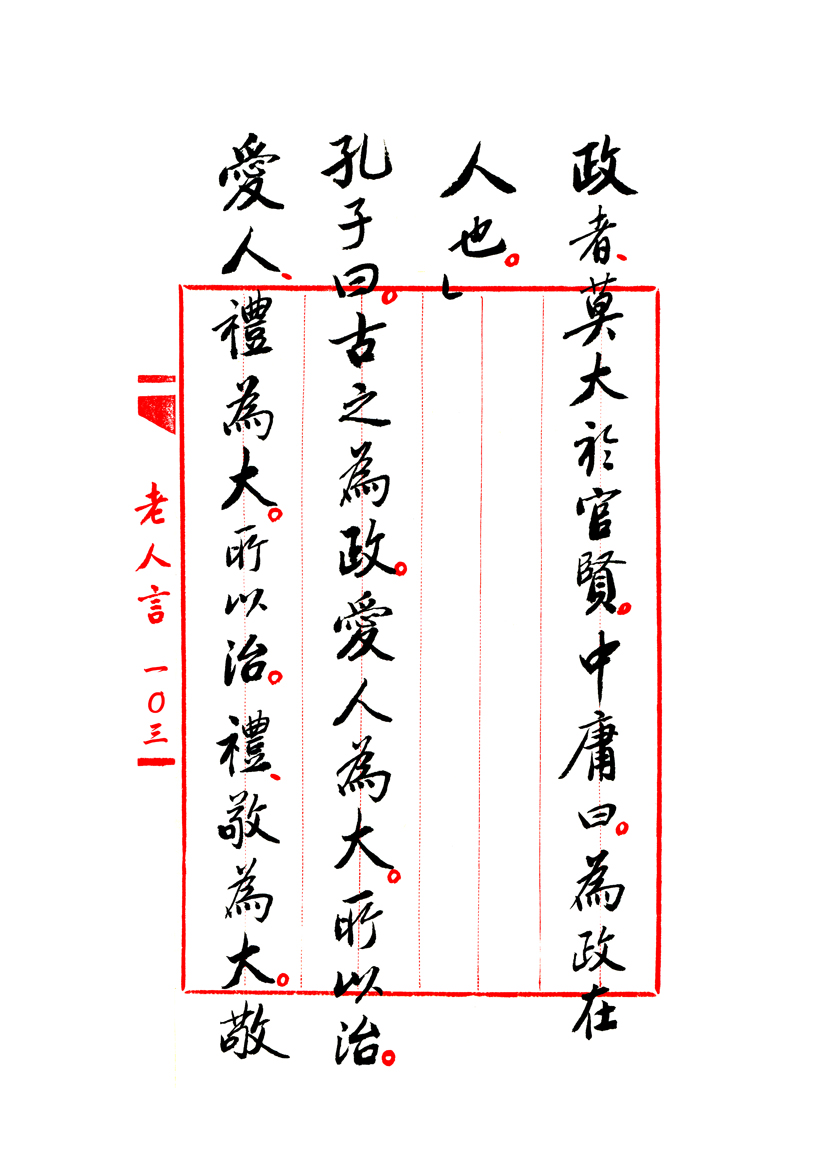 政者、莫大於官賢。中庸曰。為政在
人也。」
孔子曰。古之為政。愛人為大。所以治
愛人、禮為大。所以治。禮、敬為大。敬
老人言 一〇三